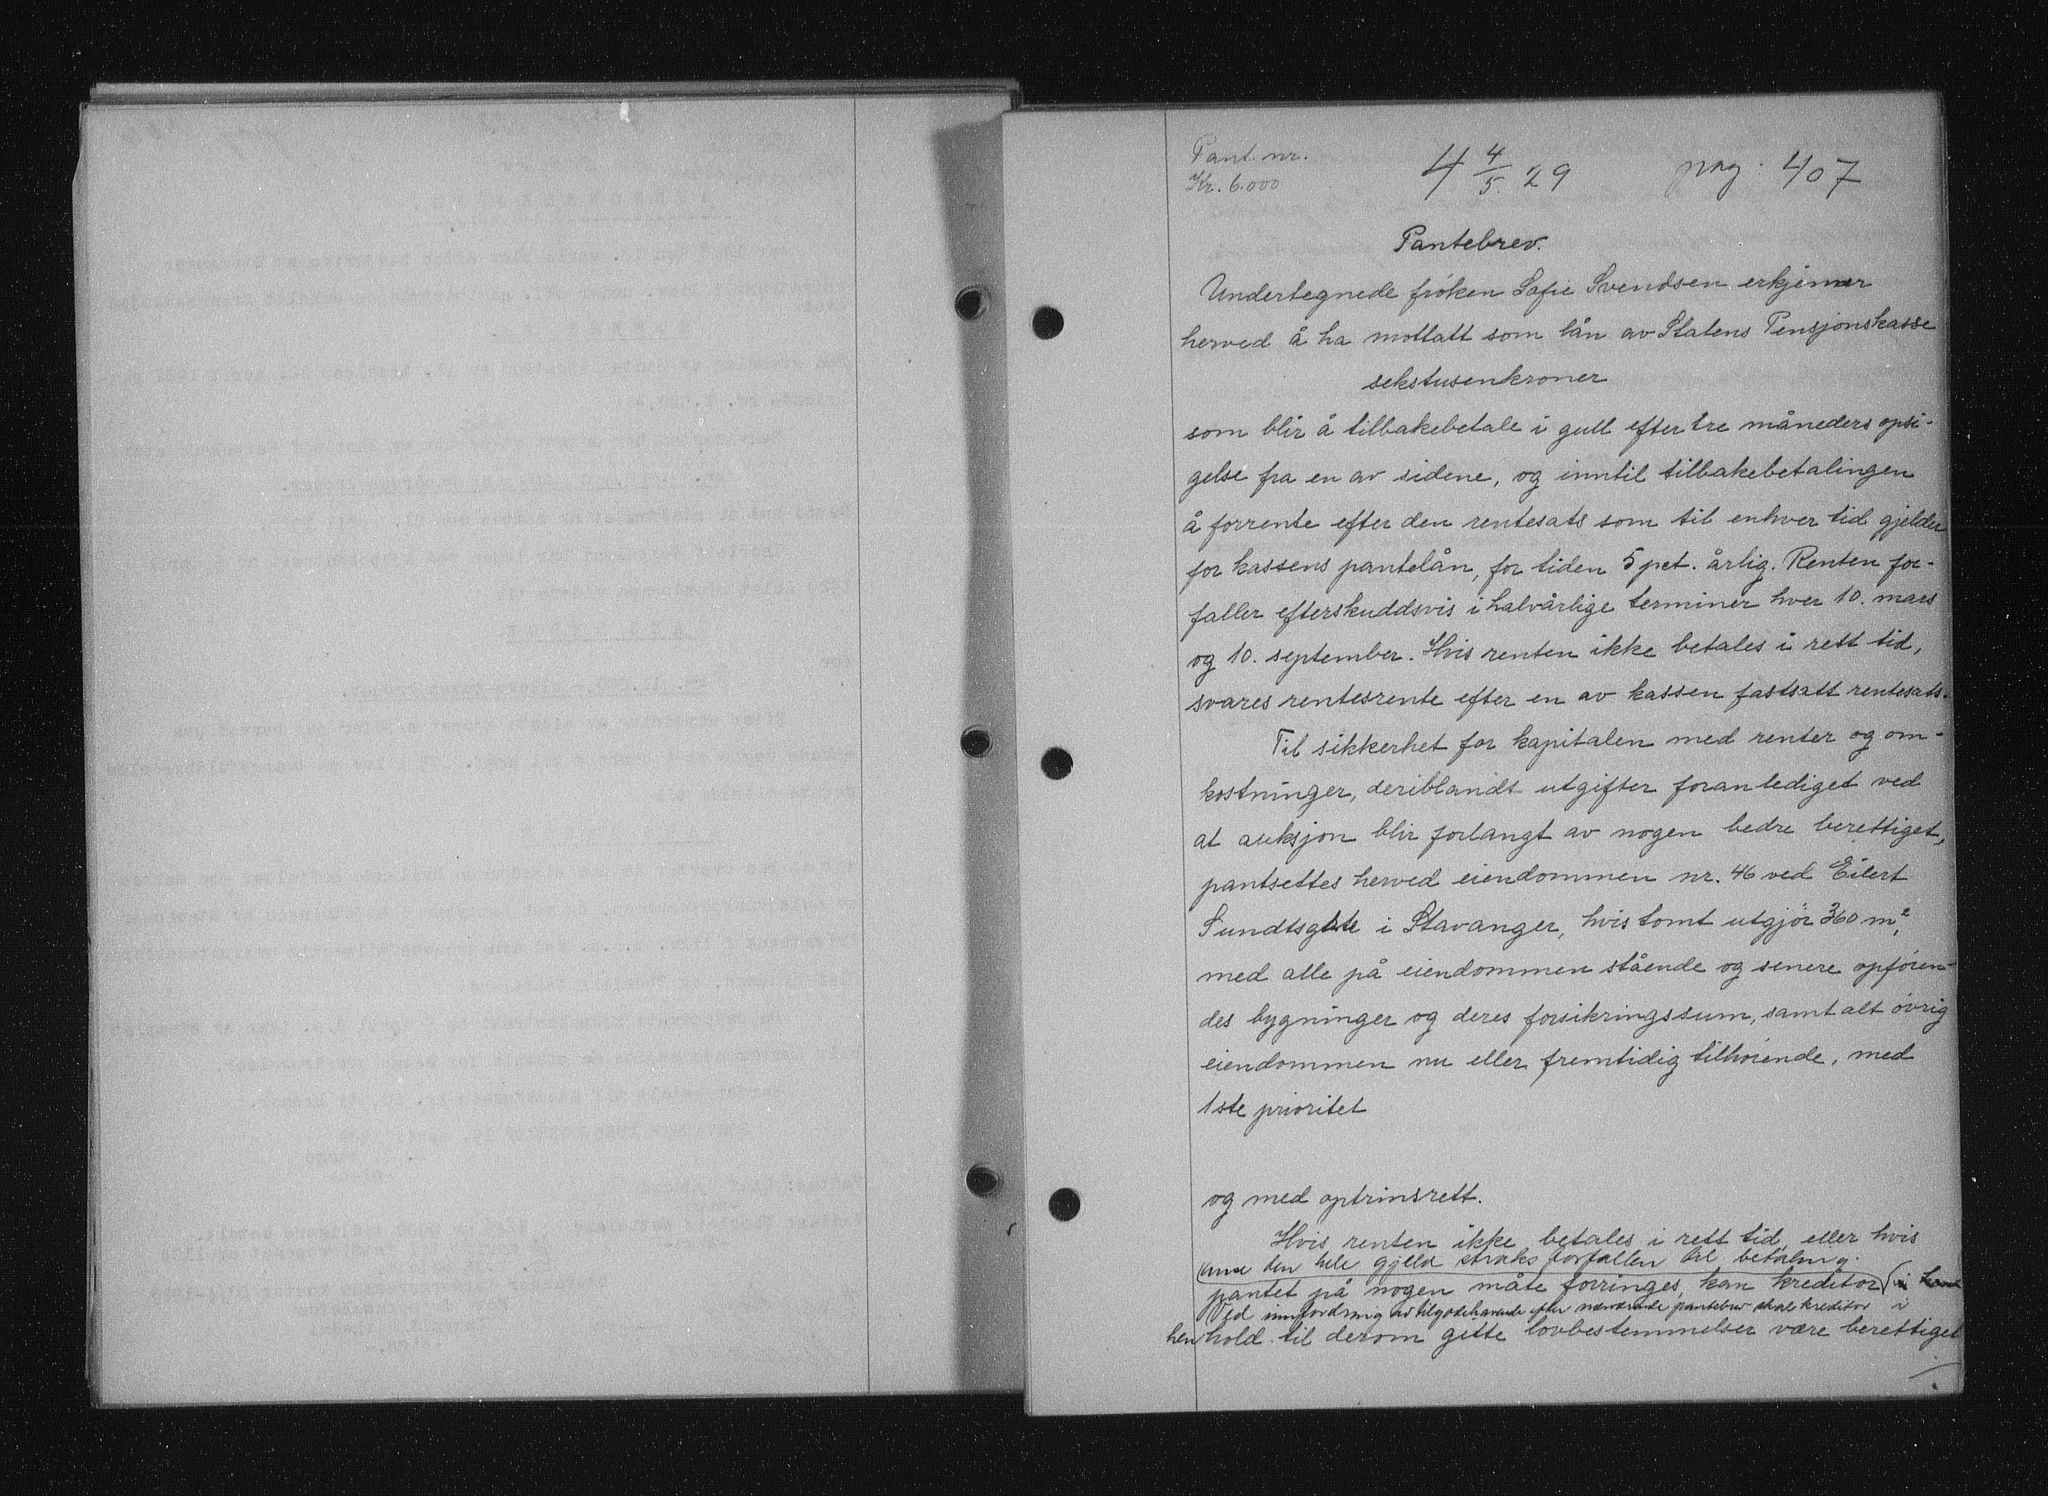 Pant. nr.
Kr. 6.000
4 4/5. 29 pag. 407
Pantebrev.
Undertegnede frøken Sofie Svendsen erkjenner
herved å ha mottatt som lån av Statens Pensjonskasse
sekstusenkroner
som blir å tilbakebetale i gull efter tre måneders opsi-
gelse fra en av sidene, og inntil tilbakebetalingen
å forrente efter den rentesats som til enhver tid gjelder
for kassens pantelån, for tiden 5 pct. årlig. Renten for-
faller efterskuddsvis i halvårlige terminer hver 10. mars
og 10. september. Hvis renten ikke betales i rett tid,
svares rentesrente efter en av kassen fastsatt rentesats.
Til sikkerhet for kapitalen med renter og om-
kostninger, deriblandt utgifter foranlediget ved
at auksjon blir forlangt av nogen bedre berettiget,
pantsettes herved eiendommen nr. 46 ved Eilert
Sundtsgate i Stavanger, hvis tomt utgjør 360 m²,
med alle på eiendommen stående og senere opføren-
des bygninger og deres forsikringssum, samt alt øvrig
eiendommen nu eller fremtidig tilhørende, med
1ste prioritet
og med optrinsrett.
Hvis renten ikke betales i rett tid, eller hvis
den hele gjeld straks forfallen til betaling.
pantet på nogen måte forringes, kan kreditor
Ved innfordring av tilgodehavende efter nærværende pantebrev skal kreditor i
henhold til derom gitte lovbestemmelser være berettiget